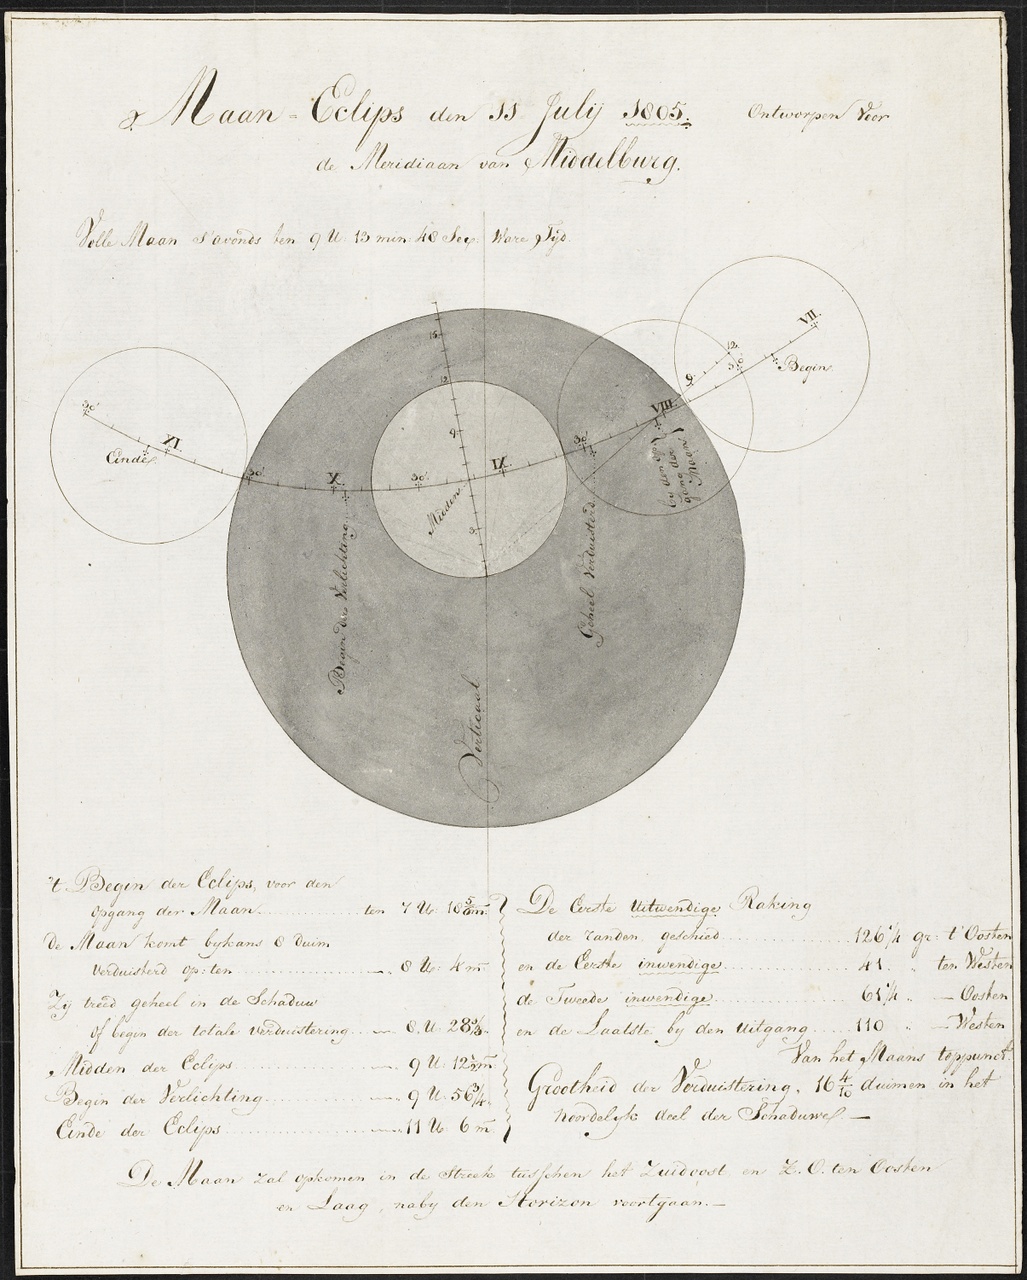 Maan-Eclips den 11 July 1805. Ontworpen Voor
de Meridiaan van Middelburg.
Volle Maan s'avonds ten 9 U: 13 min: 48 Sec: Ware Tyd.
VII.
Begin.
12.
30'
9.
VIII.
by den op
gang der
Maan
15
12
9
IX.
30'
Midden
6
X.
30'
30'
XI.
Einde.
30'
Geheel Verduisterd
Begin der Verlichting
Verticaal
't Begin der Eclips, voor den
opgang der Maan ten 7 U:
de Maan komt bykans 8 duim
verduisterd op: ten 8 U: 4 m
Zy treed geheel in de Schaduw
of begin der totale verduistering 8 U: 28
Midden der Eclips 9 U: 12
Begin der Verlichting 9 U: 56 3/4
Einde der Eclips 11 U: 6 m
De Eerste Uitwendige Raking
der randen geschied 126 1/4 gr: t'Oosten
en de Eerste inwendige 41 „ ten Westen
de Tweede inwendige 61 1/4 „ — Oosten
en de Laatste by den Uitgang 110 „ — Westen
Van het Maans toppunct.
Grootheid der Verduistering, 16 4/10 duimen in het
Noordelyk deel der Schaduwe —
De Maan zal opkomen in de Streek tusschen het Zuidoost en Z.O. ten Oosten
en Laag, naby den Horizon voortgaan. —